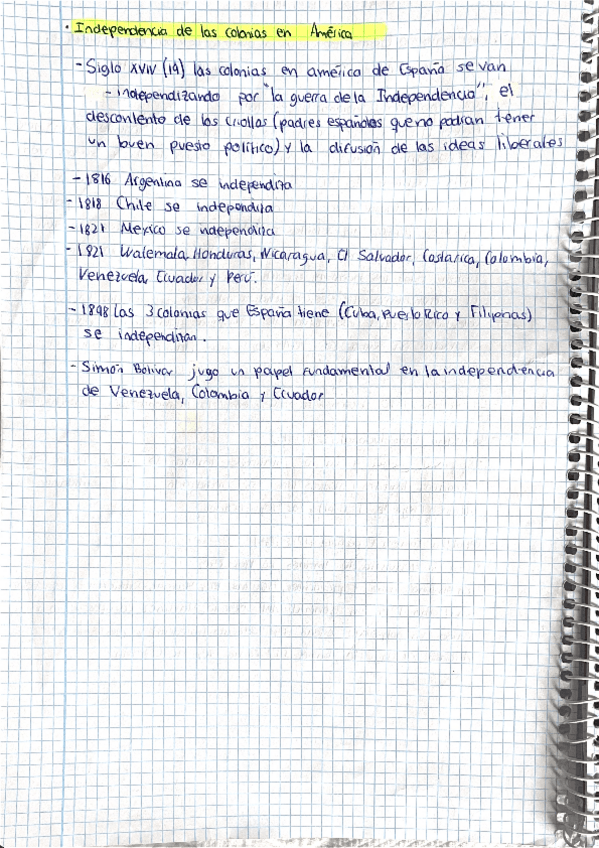 · Independencia de las colonias en América
- Siglo XVIV (19) las colonias en américa de España se van
- independizando por "la guerra de la Independencia", el
descontento de los criollos (padres españoles que no podian tener
un buen puesto político) y la difusión de las ideas liberales
- 1816 Argentina se independiza
- 1818 Chile se independiza
- 1821 Mexico se independiza
- 1821 Guatemala, Honduras, Nicaragua, El Salvador, Costa rica, Colombia,
Venezuela, Ecuador y Perú.
- 1898 las 3 colonias que España tiene (Cuba, Puerto Rico y Filipinas)
se independizan.
- Simón Bolivar jugo un papel fundamental en la independencia
de Venezuela, Colombia y Ecuador